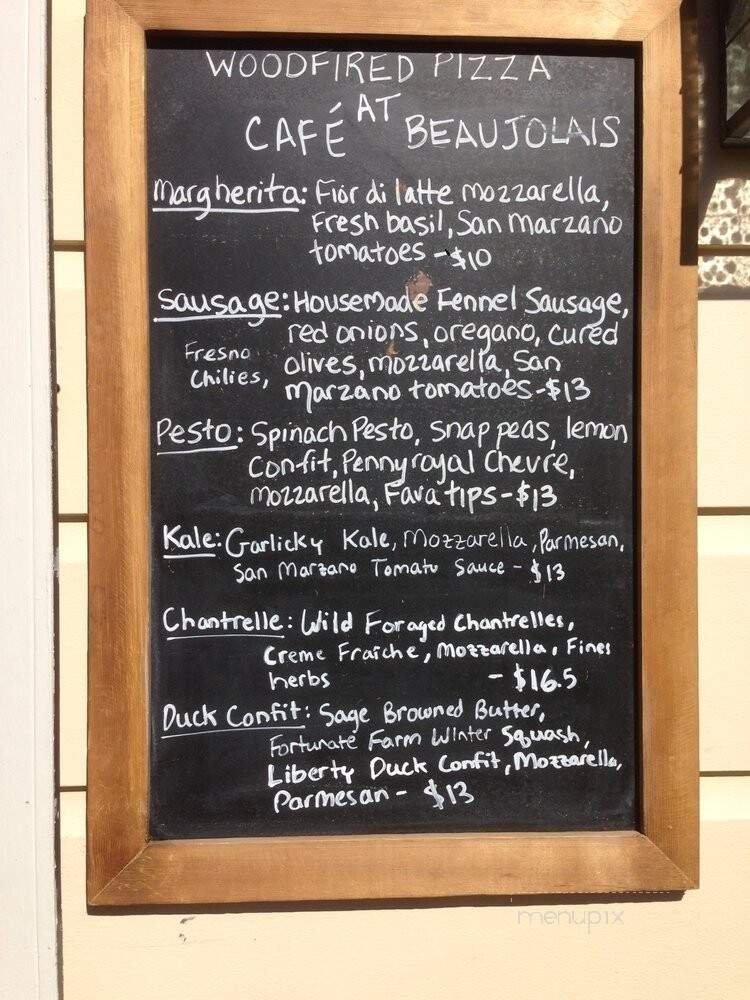 WOODFIRED PIZZA
AT
CAFÉ BEAUJOLAIS
Margherita: Fior di latte mozzarella,
Fresh basil, San Marzano
tomatoes - $10
Sausage: Housemade Fennel Sausage,
red onions, oregano, cured
Fresno Chilies, olives, mozzarella, San
Marzano tomatoes - $13
Pesto: Spinach Pesto, snap peas, lemon
Confit, Pennyroyal Chevre,
mozzarella, Fava tips - $13
Kale: Garlicky Kale, Mozzarella, Parmesan,
San Marzano Tomato Sauce - $13
Chantrelle: Wild Foraged Chantrelles,
Creme Fraiche, Mozzarella, Fines
herbs - $16.5
Duck Confit: Sage Browned Butter,
Fortunate Farm Winter Squash,
Liberty Duck Confit, Mozzarella,
Parmesan - $13
menupix